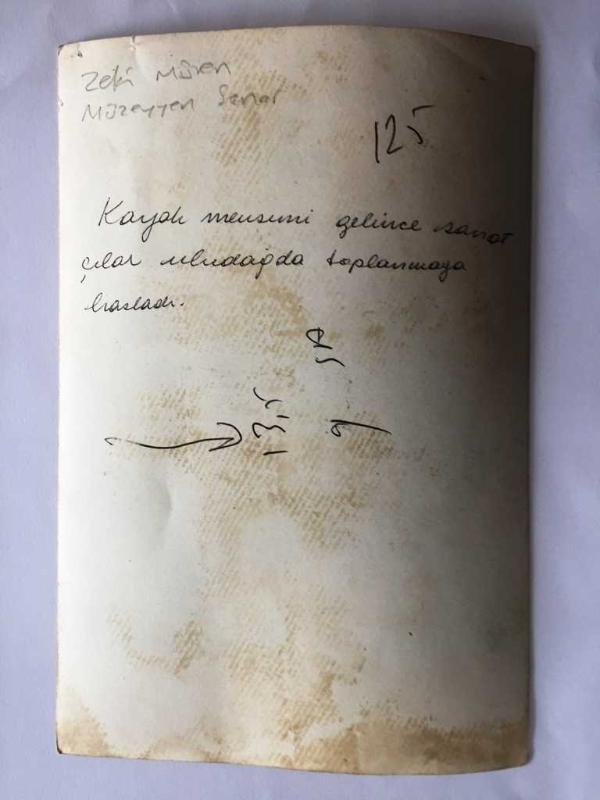 Zeki Müren
Müzeyyen Senar
125
Kayak mevsimi gelince sanat
çılar uludağda toplanmaga
basladı.
13,5
9